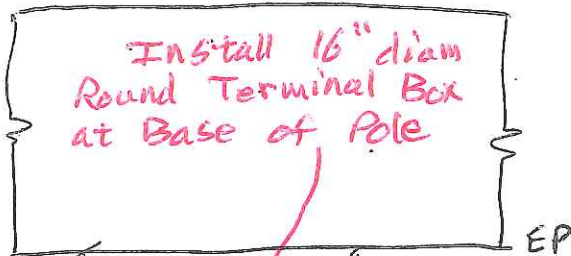 Install 16" diam
Round Terminal Box
at Base of Pole
EP